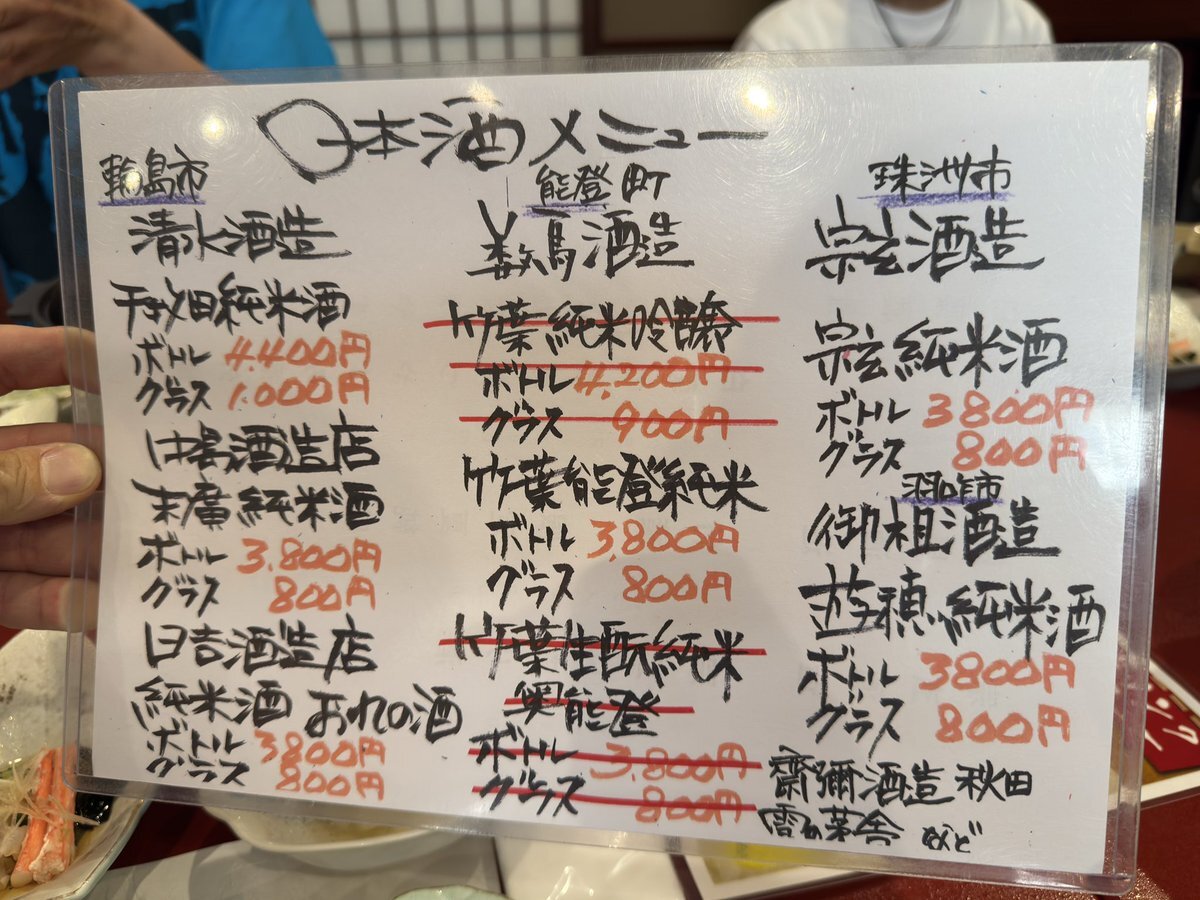 日本酒メニュー
輪島市
清水酒造
千枚田純米酒
ボトル 4.400円
グラス 1.000円
白藤酒造店
末廣純米酒
ボトル 3.800円
グラス 800円
日吉酒造店
純米酒 おれの酒
ボトル 3800円
グラス 800円
能登町
数馬酒造
竹葉純米吟醸
ボトル 4,200円
グラス 900円
竹葉能登純米
ボトル 3,800円
グラス 800円
竹葉生酛純米
奥能登
ボトル 3.800円
グラス 800円
珠洲市
宗玄酒造
宗玄純米酒
ボトル 3800円
グラス 800円
羽咋市
御祖酒造
遊穂純米酒
ボトル 3800円
グラス 800円
齋彌酒造 秋田
雪の茅舎 など